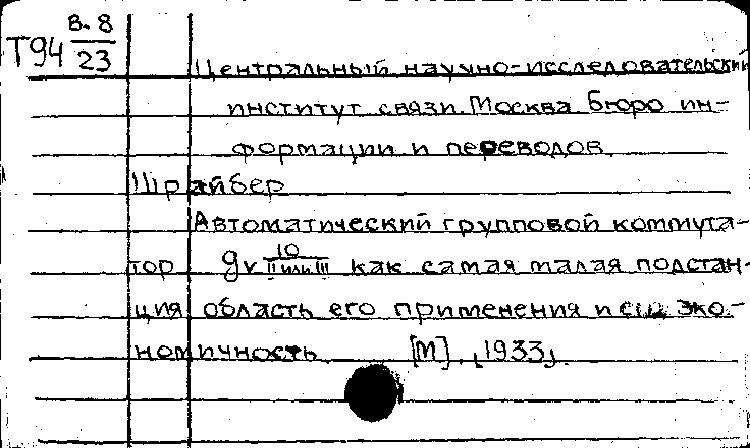 В. 8
Т94 23
Центральный научно-исследовательский
институт связи. Москва Бюро ин-
формации и переводов
Шрайбер
Автоматический групповой коммута-
тор gv 10 II или III как самая малая подстан-
ция область его применения и эко-
номичность [М] 1933